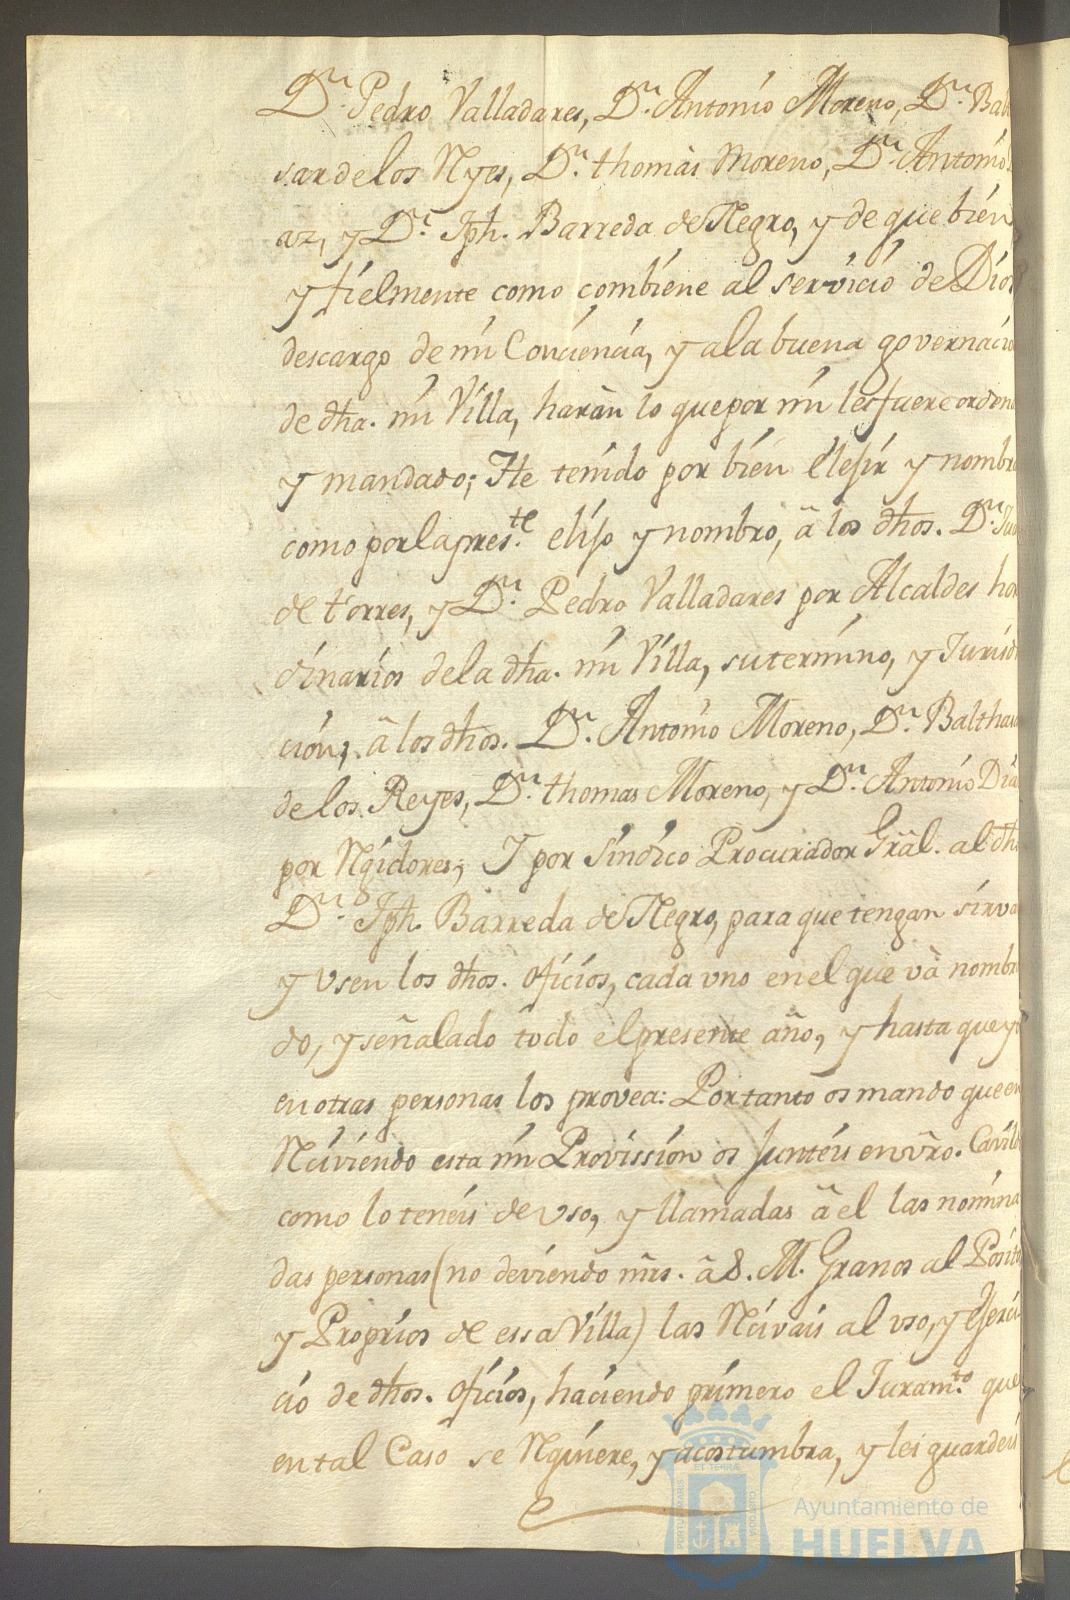 Dn. Pedro Valladares, Dn. Antonio Moreno, Dn. Balt
sar de los Ryes, Dn. thomàs Moreno, Dn. Antonio
az, y Dn. Jph. Barreda de Negro, y de que bien
y fielmente como combiene al servicio de Dios
descargo de mi Conciencia, y a la buena governacio
de dha. mi Villa, haràn lo que por mi les fuere ordena
y mandado; He tenido por bien elejir y nombra
como por la preste. elijo y nombro, â los dhos. Dn. Jua
de torres, y Dn. Pedro Valladares por Alcaldes hor
dinarios de la dha. mi Villa, su termino, y Jurisdi
cion; â los dhos. Dn. Antonio Moreno, Dn. Balthasa
de los Reyes, Dn. thomas Moreno, y Dn. Antonio Dia
por Rgidores; Y por Sindico Procurador Grâl. al dho
Dn. Jph. Barreda de Negro, para que tengan sirva
y vsen los dhos. oficios, cada vno en el que và nombra
do, y señalado todo el presente año, y hasta que yo
en otras personas los provea: Portanto os mando que en
Rciviendo esta mi Provission os Junteis en vrô. Cavildo
como lo teneis de vso, y llamadas â el las nomina
das personas (no deviendo mrs. â S. M. Granos al Posito
y Proprios de essa Villa) las Rcivais al vso, y ejerci
cio de dhos. oficios, haciendo primero el Juramto. que
en tal Caso se Rquiere, y acostumbra, y les guardeis
Ayuntamiento de
HUELVA